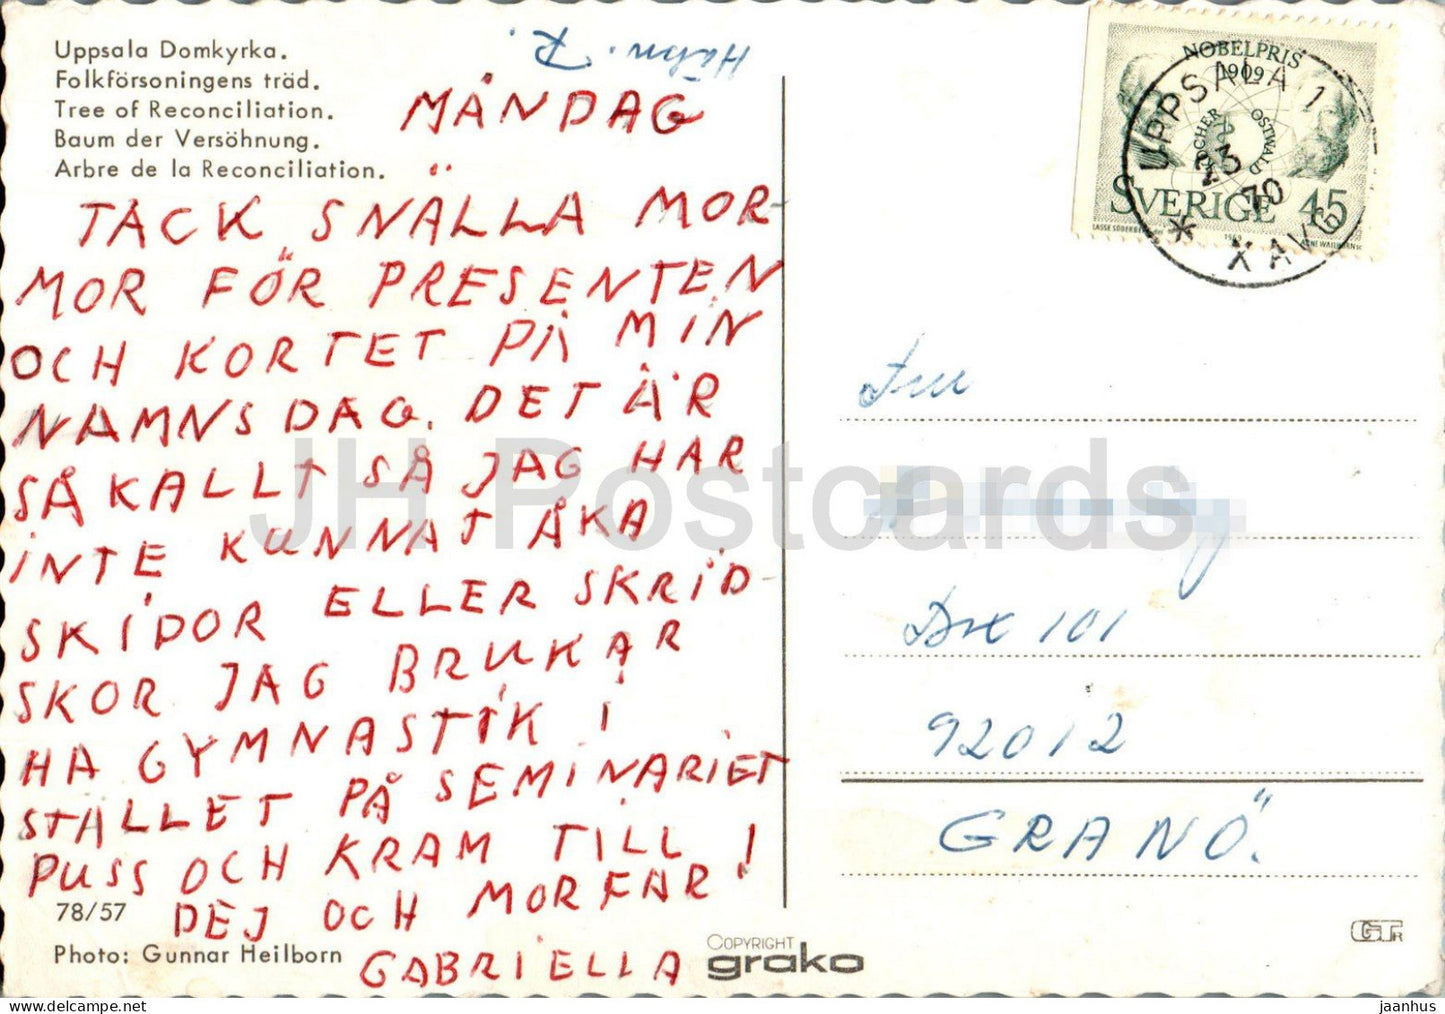 Uppsala Domkyrka.
Folkförsoningens träd.
Tree of Reconciliation.
Baum der Versöhnung.
Arbre de la Reconciliation.
MÅNDAG
TACK SNÄLLA MOR-
MOR FÖR PRESENTEN
OCH KORTET PÅ MIN
NAMNSDAG. DET ÄR
SÅ KALLT SÅ JAG HAR
INTE KUNNAT ÅKA
SKIDOR ELLER SKRID-
SKOR JAG BRUKAR
HA GYMNASTIK I
STÄLLET PÅ SEMINARIET
PUSS OCH KRAM TILL
DEJ OCH MORFAR!
GABRIELLA
78/57
Photo: Gunnar Heilborn
COPYRIGHT
grako
NOBELPRIS
1909
KOCHER OSTWALD
SVERIGE 45
1969
UPPSALA 1
23
70
* XAVG
101
92012
GRANÖ.
JH Postcards
https://www.delcampe.net/en_US/collectibles/store/jaanhus
jaanhus